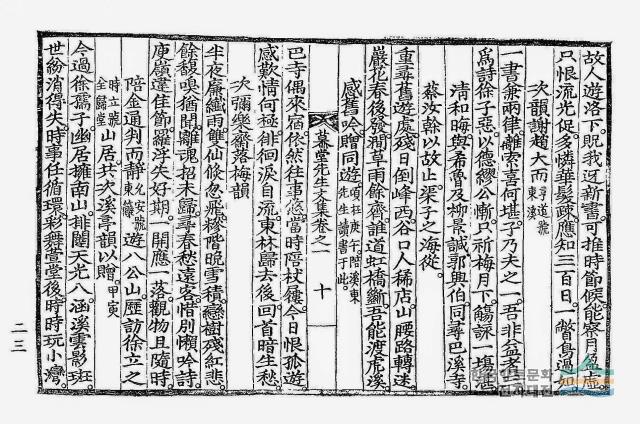 故人遊洛下旣我迓新書可推時節候能察月盈虛
只恨流光促多憐華髮疎應知三百日一瞥鳥過
次韻謝趙大而 孝道號東溪
一書兼兩律離索喜何堪子乃夫之一吾非益者三
爲詩徐子惡以德繆公慚只祈梅月下觴詠一塲
淸和晦與希魯及柳景誠郭興伯同尋巴溪寺
蔡汝幹以故止渠子之海從
重尋舊遊處殘日倒峰西谷口人稀店山腰路轉迷
巖花春後發澗草雨餘齊誰道虹橋斷吾能渡虎溪
感舊吟贈同遊 項在庚午陪溪東先生讀書于此
暮堂先生文集卷之一 十
巴寺偶來宿依然往事悠當時陪杖屨今日恨孤遊
感歎情何極徘徊淚自流東林歸去後回首暗生愁
次彌樂齋落梅韻
半夜廉纖雨雙仙倏忽飛糝階晩雪積戀樹殘紅悲
餘馥嗅猶聞離魂招未歸尋春愁遠客惜別懶吟詩
庾嶺違佳節羅浮失好期一開應一落觀物且隨時
陪金通判而靜 允安號東籬 遊八公山歷訪徐立之
時立號全歸堂 山居共次溪亭韻以贈 甲寅
今過徐孺子幽居擁南山排闥天光入涵溪雲影斑
世紛消得失時事任循環彩舞萱堂後時時玩小灣
二三